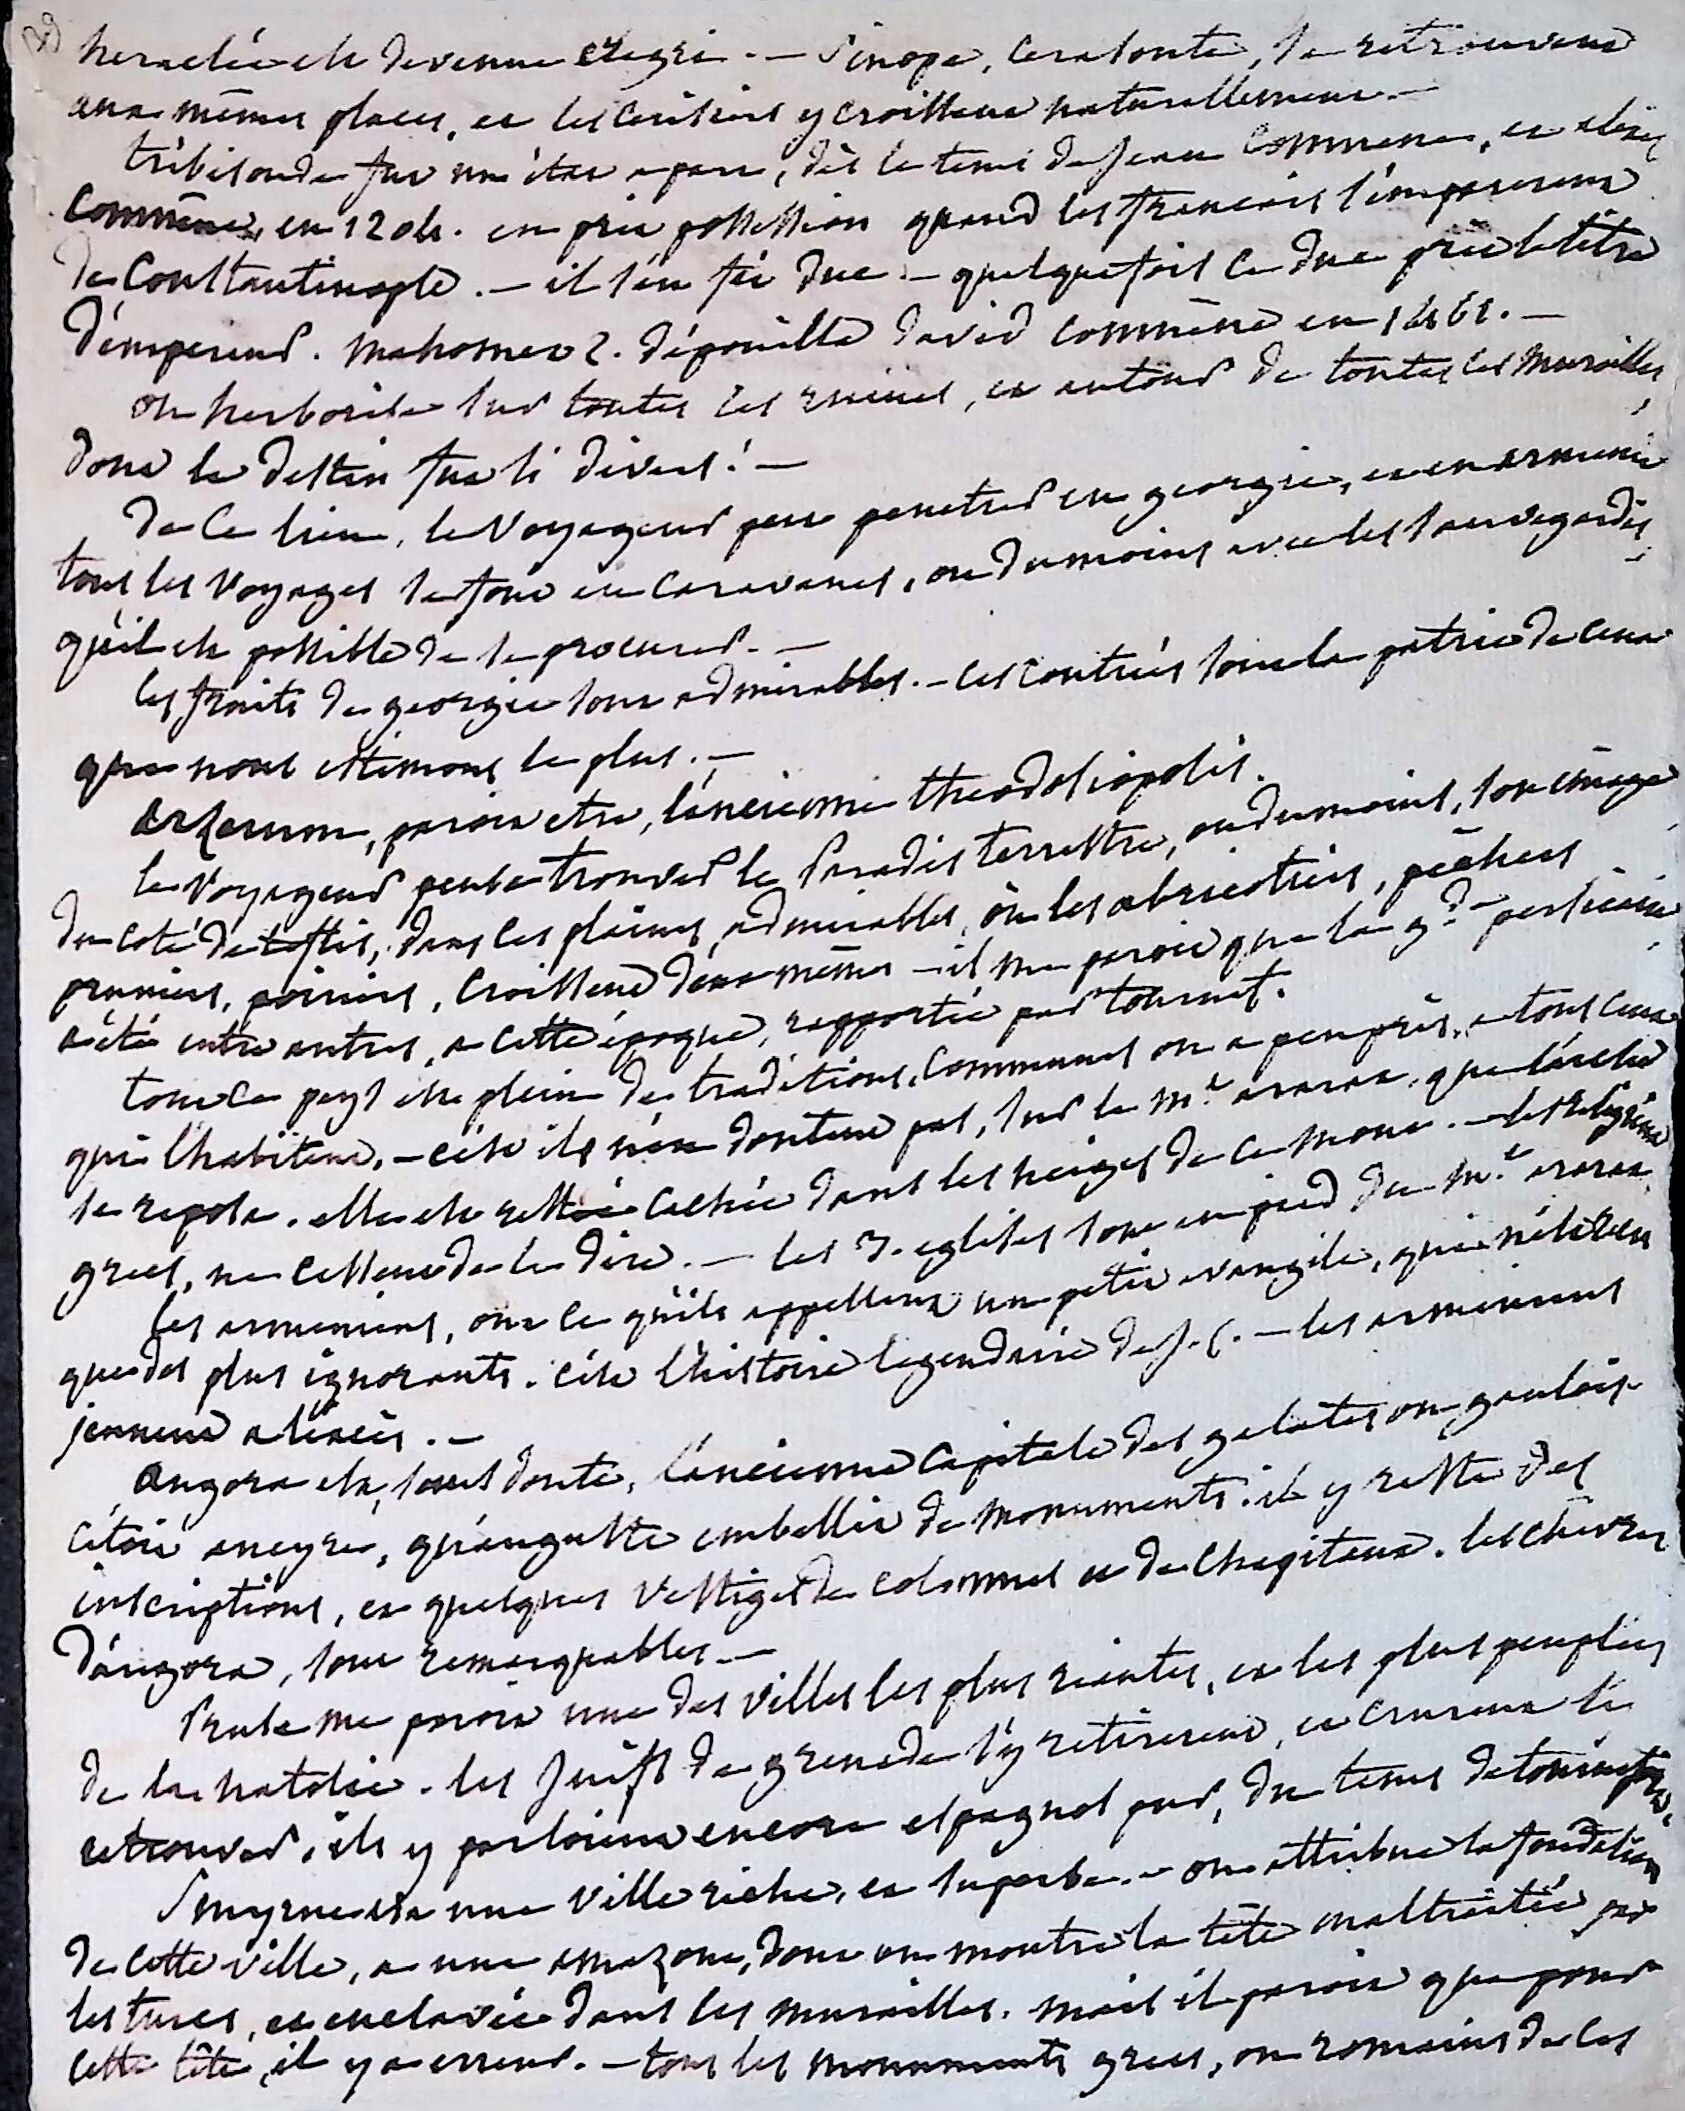 heraclée est devenue eregri. — Sinope, Cerasonte, se retrouvent
aux mêmes places, et les cerisiers y croissent naturellement. —
trébisonde fut un état a part, dès le tems de Jean Comnene, et alexis
Comnène, en 1204. en prit possession quand les français s'emparerent
de Constantinople. — il s'en fit duc — quelquefois ce duc prit le titre
d'empereur. mahomet 2. dépouilla david Comnène en 1461. —
on herborise sur toutes ces ruines, et autour de toutes ces murailles,
dont le destin fut si divers! —
De ce lieu, le Voyageur peut penetrer en georgie, et en armenie
tous les Voyages se font en Caravanes, ou du moins avec les sauvegardes,
qu'il est possible de se procurer. —
les fruits de georgie sont admirables. — ces contrées sont la patrie de ceux
que nous estimons le plus. —
arzerum, paroit etre, l'ancienne theodosiopolis.
le Voyageur peut se trouver le Paradis terrestre, ou du moins, son image
du coté de teflis, dans ces plaines admirables, où les abricotiers, pêchers
pruniers, poiriers, croissent d'eux mêmes — il me paroit que la gde persicaire
a été entre autres, a cette époque, rapportée par tournef.
tout ce pays est plein de traditions, communes ou a peu près, a tous ceux
qui l'habitent. — c'est ils n'en doutent pas, sur le mt ararat, que l'arche
se reposa. elle est restée cachée dans les neiges de ce mont. — les religieux
grecs, ne cessent de le dire. — les 3. eglises sont au pied du mt ararat.
les armeniens, ont ce qu'ils appellent un petit evangile, qui n'est lu
que des plus ignorants. c'est l'histoire legendaire de J. C. — les armeniens
jeunent a l'excès. —
angora est, sans doute, l'ancienne capitale des galates ou gaulois
c'étoit ancyre, qu'auguste embellit de monuments. il y reste des
inscriptions, et quelques vestiges de colonnes et de chapiteaux. les chèvres
d'angora, sont remarquables. —
Pruse me paroit une des villes les plus riantes, et les plus peuplées
de la natolie. les Juifs de grenade s'y retirerent, et crurent s'y
retrouver. ils y parloient encore espagnol pur, du tems de tournefort.
Smyrne est une ville riche, et superbe. — on attribue la fondation
de cette ville, a une amazone, dont on montre la tête maltraitée par
les turcs, et enclavée dans les murailles. mais il paroit que pour
cette tête, il y a erreur. — tous les monuments grecs, ou romains de ces